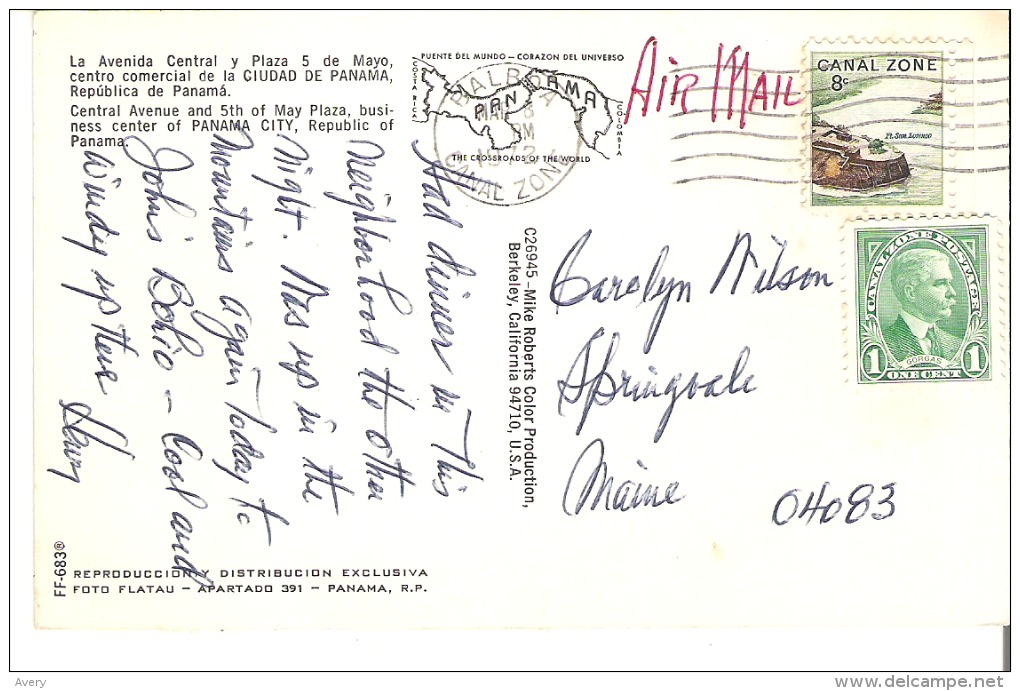 La Avenida Central y Plaza 5 de Mayo,
centro comercial de la CIUDAD DE PANAMA,
República de Panamá.
Central Avenue and 5th of May Plaza, busi-
ness center of PANAMA CITY, Republic of
Panama.
PUENTE DEL MUNDO – CORAZON DEL UNIVERSO
COSTA RICA
PANAMA
COLOMBIA
THE CROSSROADS OF THE WORLD
BALBOA
MAR
PM
CANAL ZONE
AIR MAIL
CANAL ZONE
8c
Ft. San Lorenzo
CANAL ZONE POSTAGE
GORGAS
1 1
ONE CENT
Had dinner in This
neighborhood the other
night. Was up in the
mountains again Today to
John's Bohio – Cool and
Windy up there
C26945–Mike Roberts Color Production,
Berkeley, California 94710, U.S.A.
Carolyn Wilson
Springvale
Maine 04083
FF-683®
REPRODUCCION Y DISTRIBUCION EXCLUSIVA
FOTO FLATAU – APARTADO 391 – PANAMA, R.P.
Avery
delcampe.net